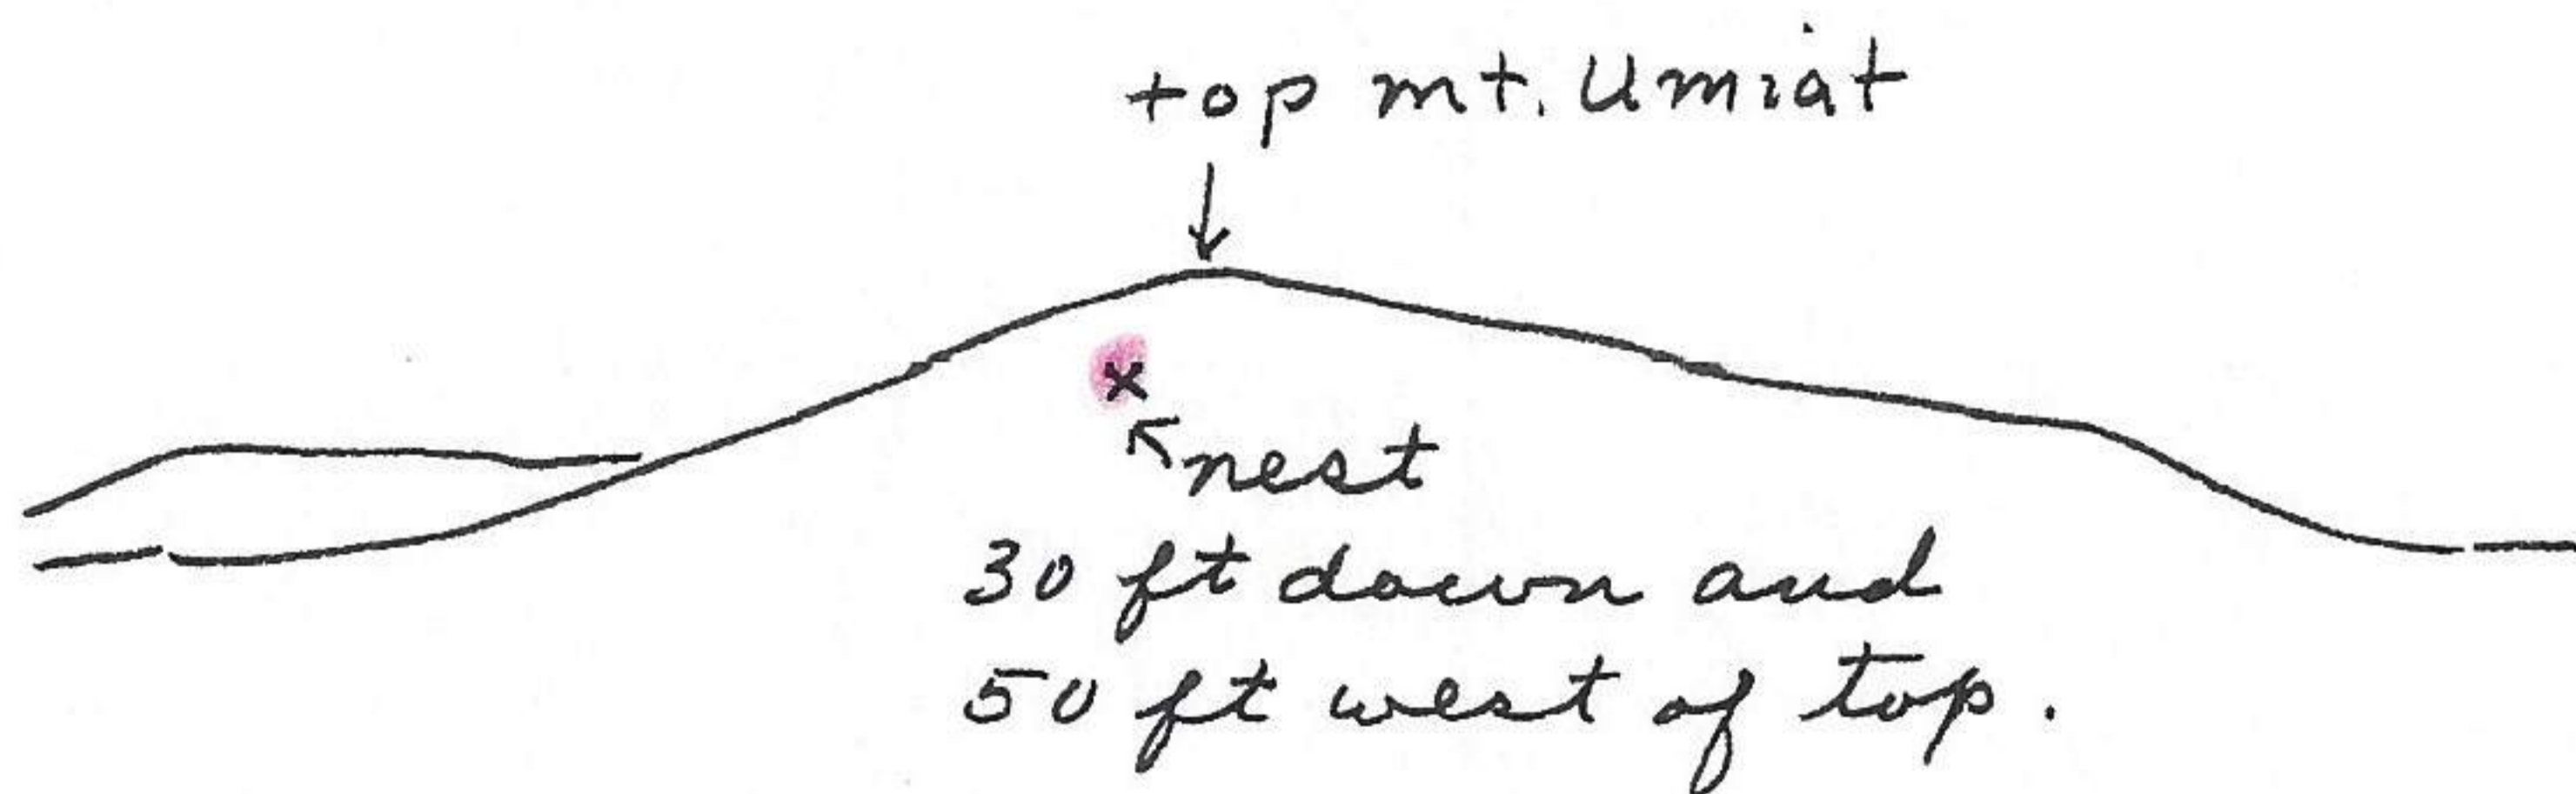 top mt. Umiat
x
nest
30 ft down and
50 ft west of top.